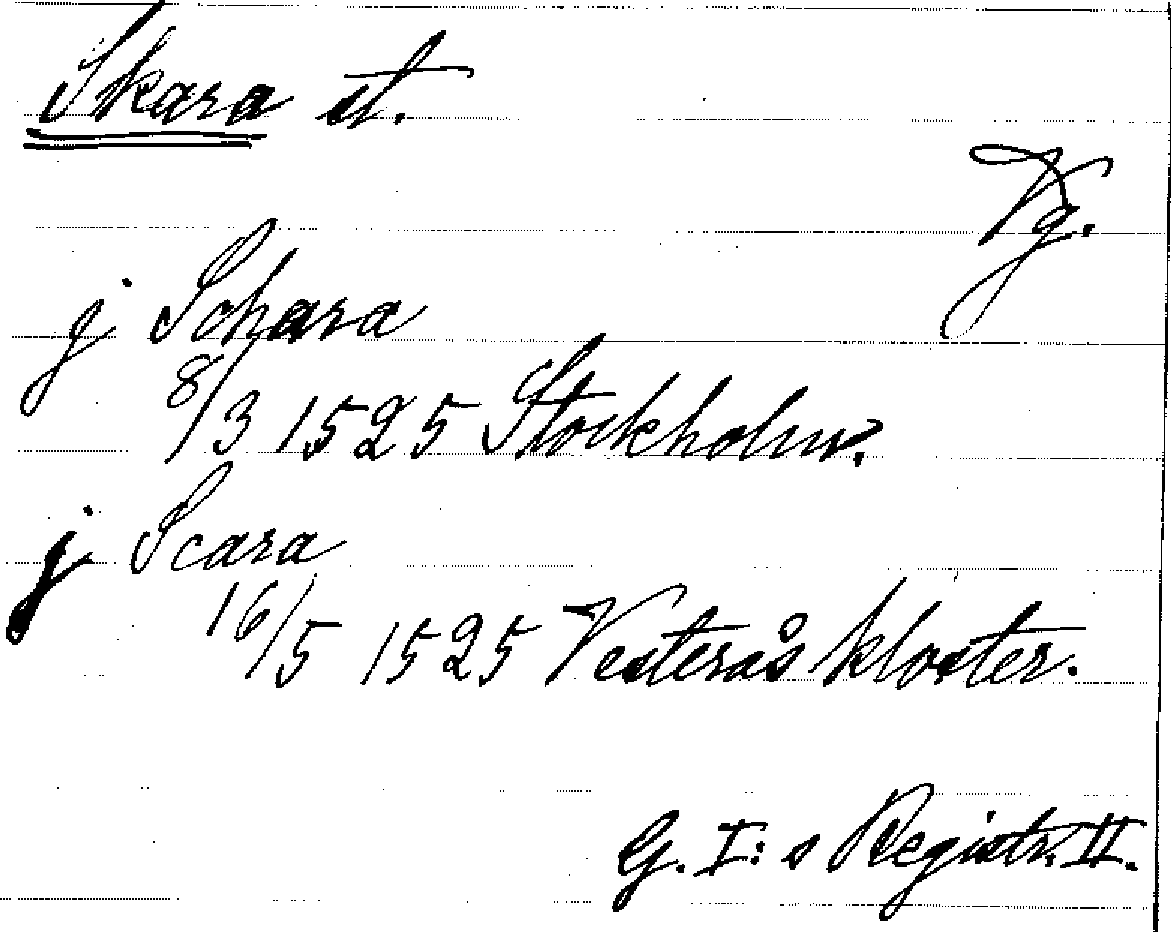 Skara st.
Vg.
j Schara
8/3 1525 Stockholm.
j Scara
16/5 1525 Vesterås kloster.
G. I:s Registr. II.